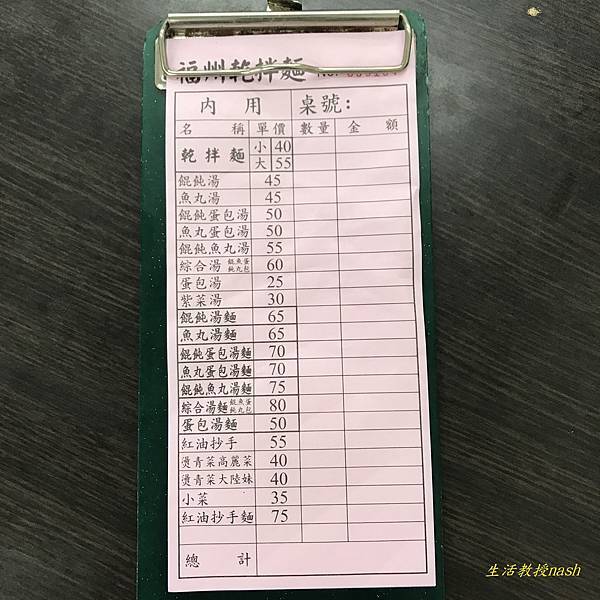 福州乾拌麵 No.
內用 桌號:
名稱 單價 數量 金額
乾拌麵 小 40
大 55
餛飩湯 45
魚丸湯 45
餛飩蛋包湯 50
魚丸蛋包湯 50
餛飩魚丸湯 55
綜合湯 餛魚蛋飩丸包 60
蛋包湯 25
紫菜湯 30
餛飩湯麵 65
魚丸湯麵 65
餛飩蛋包湯麵 70
魚丸蛋包湯麵 70
餛飩魚丸湯麵 75
綜合湯麵 餛魚蛋飩丸包 80
蛋包湯麵 50
紅油抄手 55
燙青菜高麗菜 40
燙青菜大陸妹 40
小菜 35
紅油抄手麵 75
總計
生活教授nash